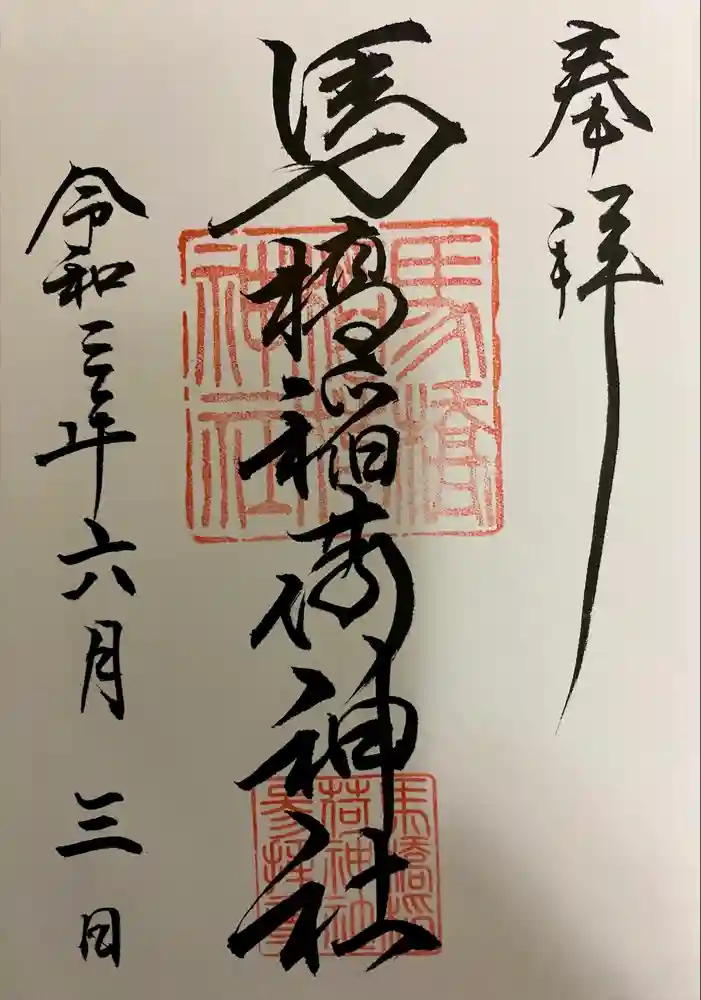 奉拝
馬橋稲荷神社
令和三年六月三日
馬橋稲荷神社
馬橋稲荷神社参拝章